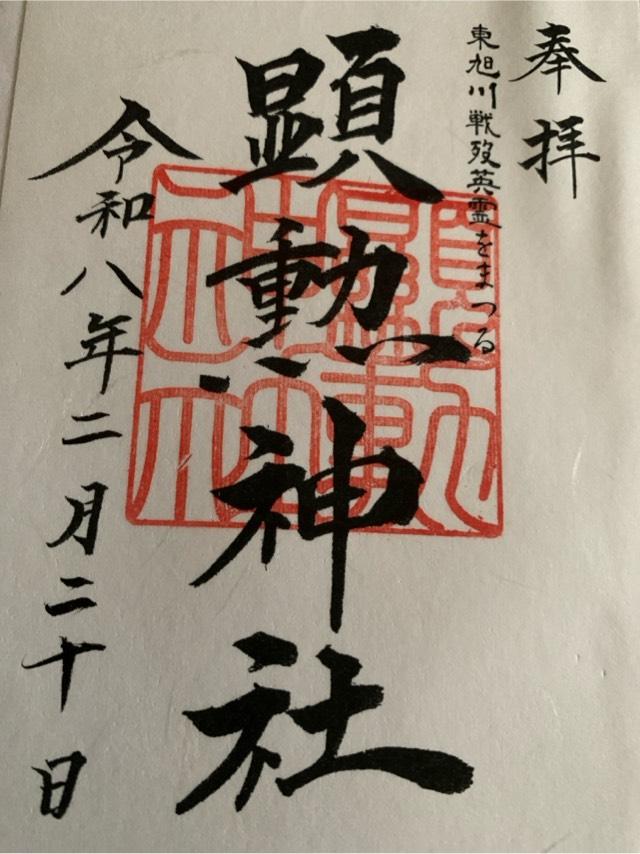 奉拝
東旭川戦歿英霊をまつる
顕勲神社
令和八年二月二十日
顕勲神社